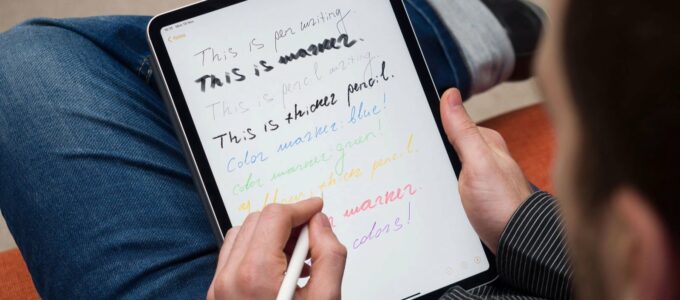 This is pen writing.
This is marker.
This is pencil writing.
This is thicker pencil.
Color marker: blue!
Color marker: green!
thick pencil.
marker.
colors!